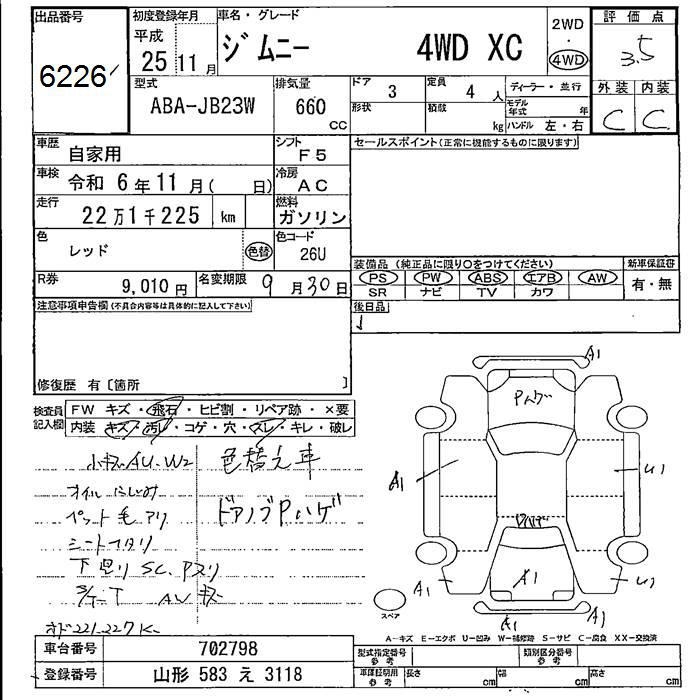 出品番号
6226
初度登録年月
平成
25 11 月
車名・グレード
ジムニー 4WD XC
2WD
・
4WD
評価点
3.5
外装 内装
C C
型式
ABA-JB23W
排気量
660
CC
ドア
3
形状
定員
4 人
積載
kg
ディーラー・並行
モデル年式 年
ハンドル 左・右
車歴
自家用
シフト
F5
車検
令和 6年11月( 日)
冷房
AC
走行
22万1千225 km
燃料
ガソリン
色
レッド
色替
色コード
26U
R券
9,010円
名変期限
9月30日
セールスポイント(正常に機能するものに限ります)
装備品(純正品に限り○をつけてください)
PS PW ABS エアB AW
SR ナビ TV カワ
新車保証書
有・無
後日品
注意事項申告欄(不具合内容等は具体的に記入して下さい)
修復歴 有〔箇所 〕
検査員記入欄
FW キズ・飛石・ヒビ割・リペア跡・×要
内装 キズ・汚レ・コゲ・穴・スレ・キレ・破レ
小キズAU.W2
色替え車
オイルにじみ
ペット毛アリ
ドアノブPハゲ
シートヘタリ
下廻り SC、Pヌリ
AW キズ
オド221,227K
A1
Pハゲ
A1
U1
Pハゲ
A1
A1
U1
A1
A1
スペア
A－キズ E－エクボ U－凹み W－補修跡 S－サビ C－腐食 XX－交換済
車台番号
702798
登録番号
山形 583 え 3118
型式指定番号
参考
類別区分番号
参考
車庫証明用
参考
長さ cm
幅 cm
高さ cm